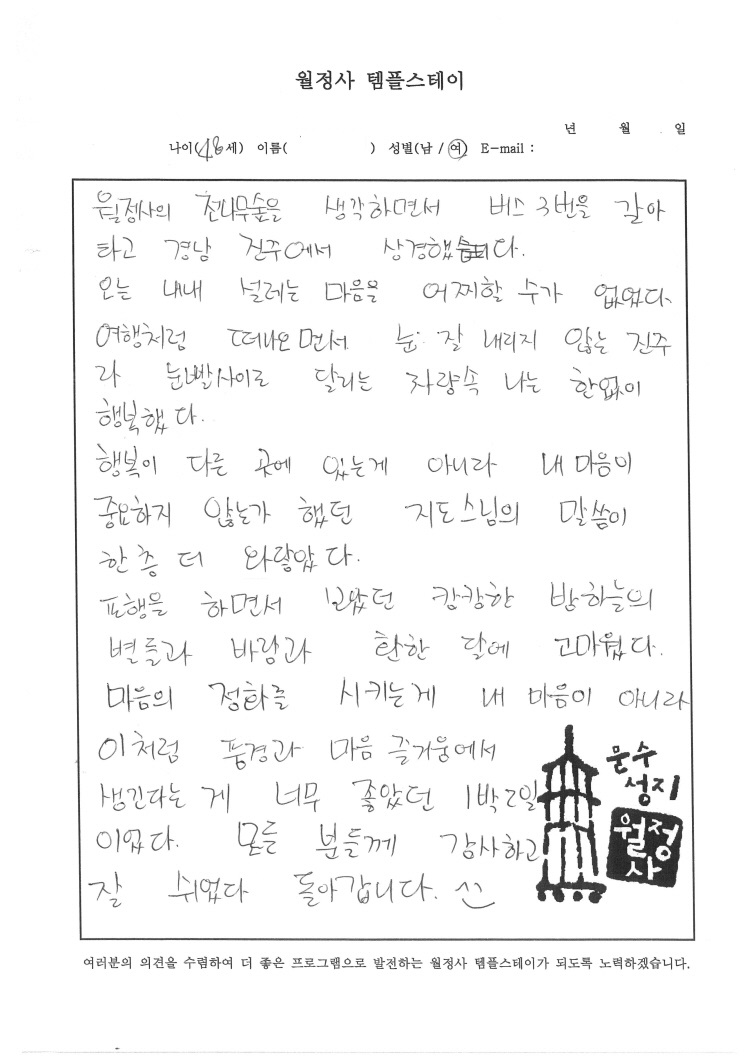 월정사 템플스테이
년 월 일
나이(48세) 이름( ) 성별(남 / 여) E-mail :
월정사의 전나무숲을 생각하면서 버스 3번을 갈아
타고 경남 진주에서 상경했습니다.
오는 내내 설레는 마음을 어찌할 수가 없었다.
여행처럼 떠나오면서 눈 잘 내리지 않는 진주
라 눈빨사이로 달리는 차량속 나는 한없이
행복했다.
행복이 다른 곳에 있는게 아니라 내 마음이
중요하지 않는가 했던 지도스님의 말씀이
한층 더 와랗았다.
포행을 하면서 보았던 캄캄한 밤하늘의
별들과 바람과 환한 달에 고마웠다.
마음의 정화를 시키는게 내 마음이 아니라
이처럼 풍경과 마음 즐거움에서
생긴다는 게 너무 좋았던 1박2일
이었다. 모든 분들께 감사하고
잘 쉬었다 돌아갑니다. ^^
문수
성지
월정
사
여러분의 의견을 수렴하여 더 좋은 프로그램으로 발전하는 월정사 템플스테이가 되도록 노력하겠습니다.